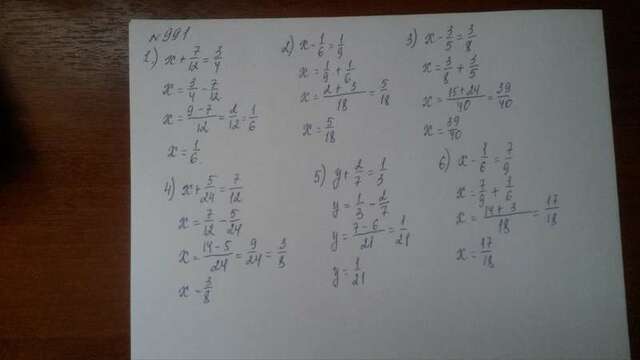 №991
1) x + 7/12 = 3/4
x = 3/4 - 7/12
x = (9-7)/12 = 2/12 = 1/6
x = 1/6.
2) x - 1/6 = 1/9
x = 1/9 + 1/6
x = (2+3)/18 = 5/18
x = 5/18
3) x - 3/5 = 3/8
x = 3/8 + 3/5
x = (15+24)/40 = 39/40
x = 39/40
4) x + 5/24 = 7/12
x = 7/12 - 5/24
x = (14-5)/24 = 9/24 = 3/8
x - 3/8
5) y + 2/7 = 1/3
y = 1/3 - 2/7
y = (7-6)/21 = 1/21
y = 1/21
6) x - 1/6 = 7/9
x = 7/9 + 1/6
x = (14+3)/18 = 17/18
x = 17/18